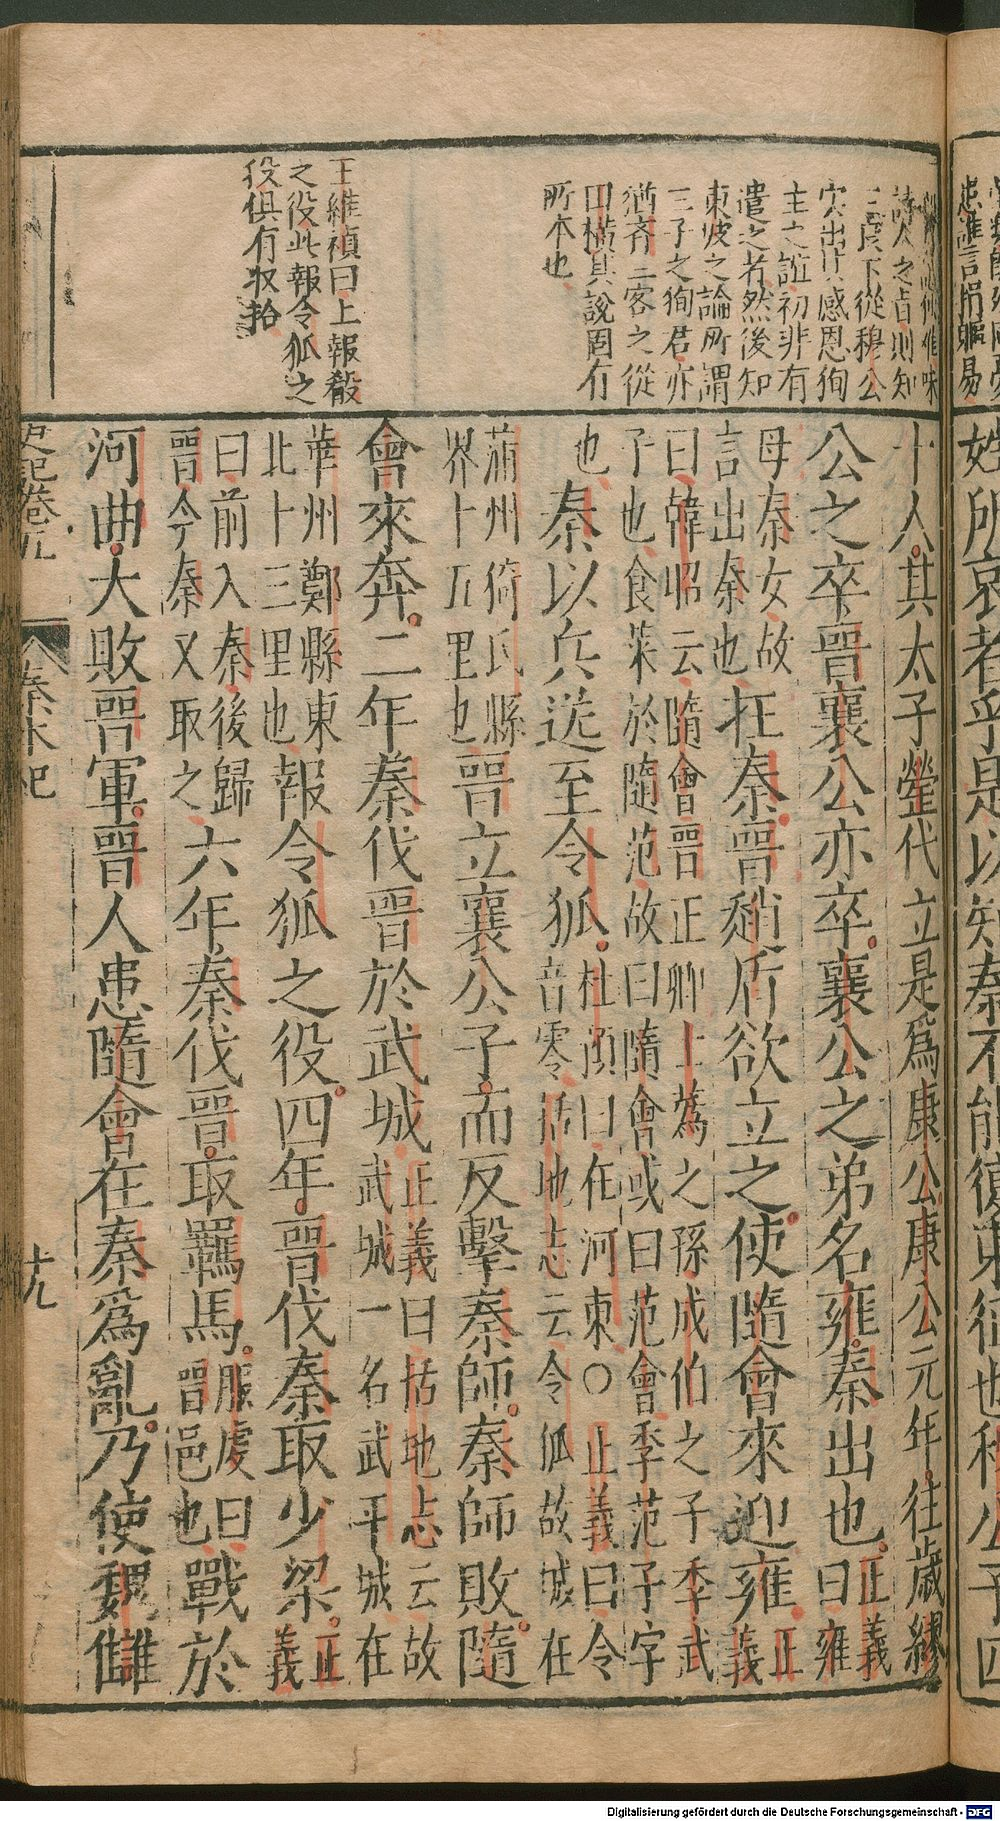 姓所哀者乎是以知秦不能復東征也穆公子四
詩人之旨則知
三良下從穆公
穴出於感恩徇
主之誼初非有
遣之者然後知
東坡之論所謂
三子之徇君亦
猶齊二客之從
田橫其說固有
所本也
王維禎曰上報殽
之役此報令狐之
役俱有収拾
十人其太子罃代立是爲康公康公元年往歲繆
公之卒晉襄公亦卒襄公之弟名雍秦出也正義
曰雍
母秦女故
言出秦也在秦晉趙盾欲立之使隨會來迎雍正
義
曰韓昭云隨會晉正卿士蔿之孫成伯之子季武
子也食菜於隨范故曰隨會或曰范會季范子字
也秦以兵送至令狐杜預曰在河東○正義曰令
音零括地志云令狐故城在
蒲州倚氏縣
界十五里也晉立襄公子而反擊秦師秦師敗隨
會來奔二年秦伐晉於武城正義曰括地志云故
武城一名武平城在
華州鄭縣東
北十三里也報令狐之役四年晉伐秦取少梁正
義
曰前入秦後歸
晉今秦又取之六年秦伐晉取羈馬服虔曰
晉邑也戰於
河曲大敗晉軍晉人患隨會在秦爲亂乃使魏讎
史記卷五
秦本紀
十九
Digitalisierung gefördert durch die Deutsche Forschungsgemeinschaft - DFG